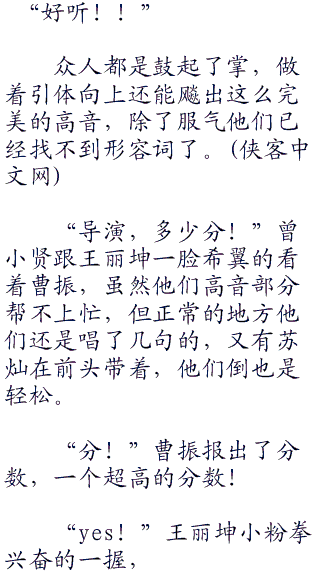 “好听！！”
众人都是鼓起了掌，做
着引体向上还能飚出这么完
美的高音，除了服气他们已
经找不到形容词了。(侠客中
文网)
“导演，多少分！”曾
小贤跟王丽坤一脸希翼的看
着曹振，虽然他们高音部分
帮不上忙，但正常的地方他
们还是唱了几句的，又有苏
灿在前头带着，他们倒也是
轻松。
“分！”曹振报出了分
数，一个超高的分数！
“yes！”王丽坤小粉拳
兴奋的一握，